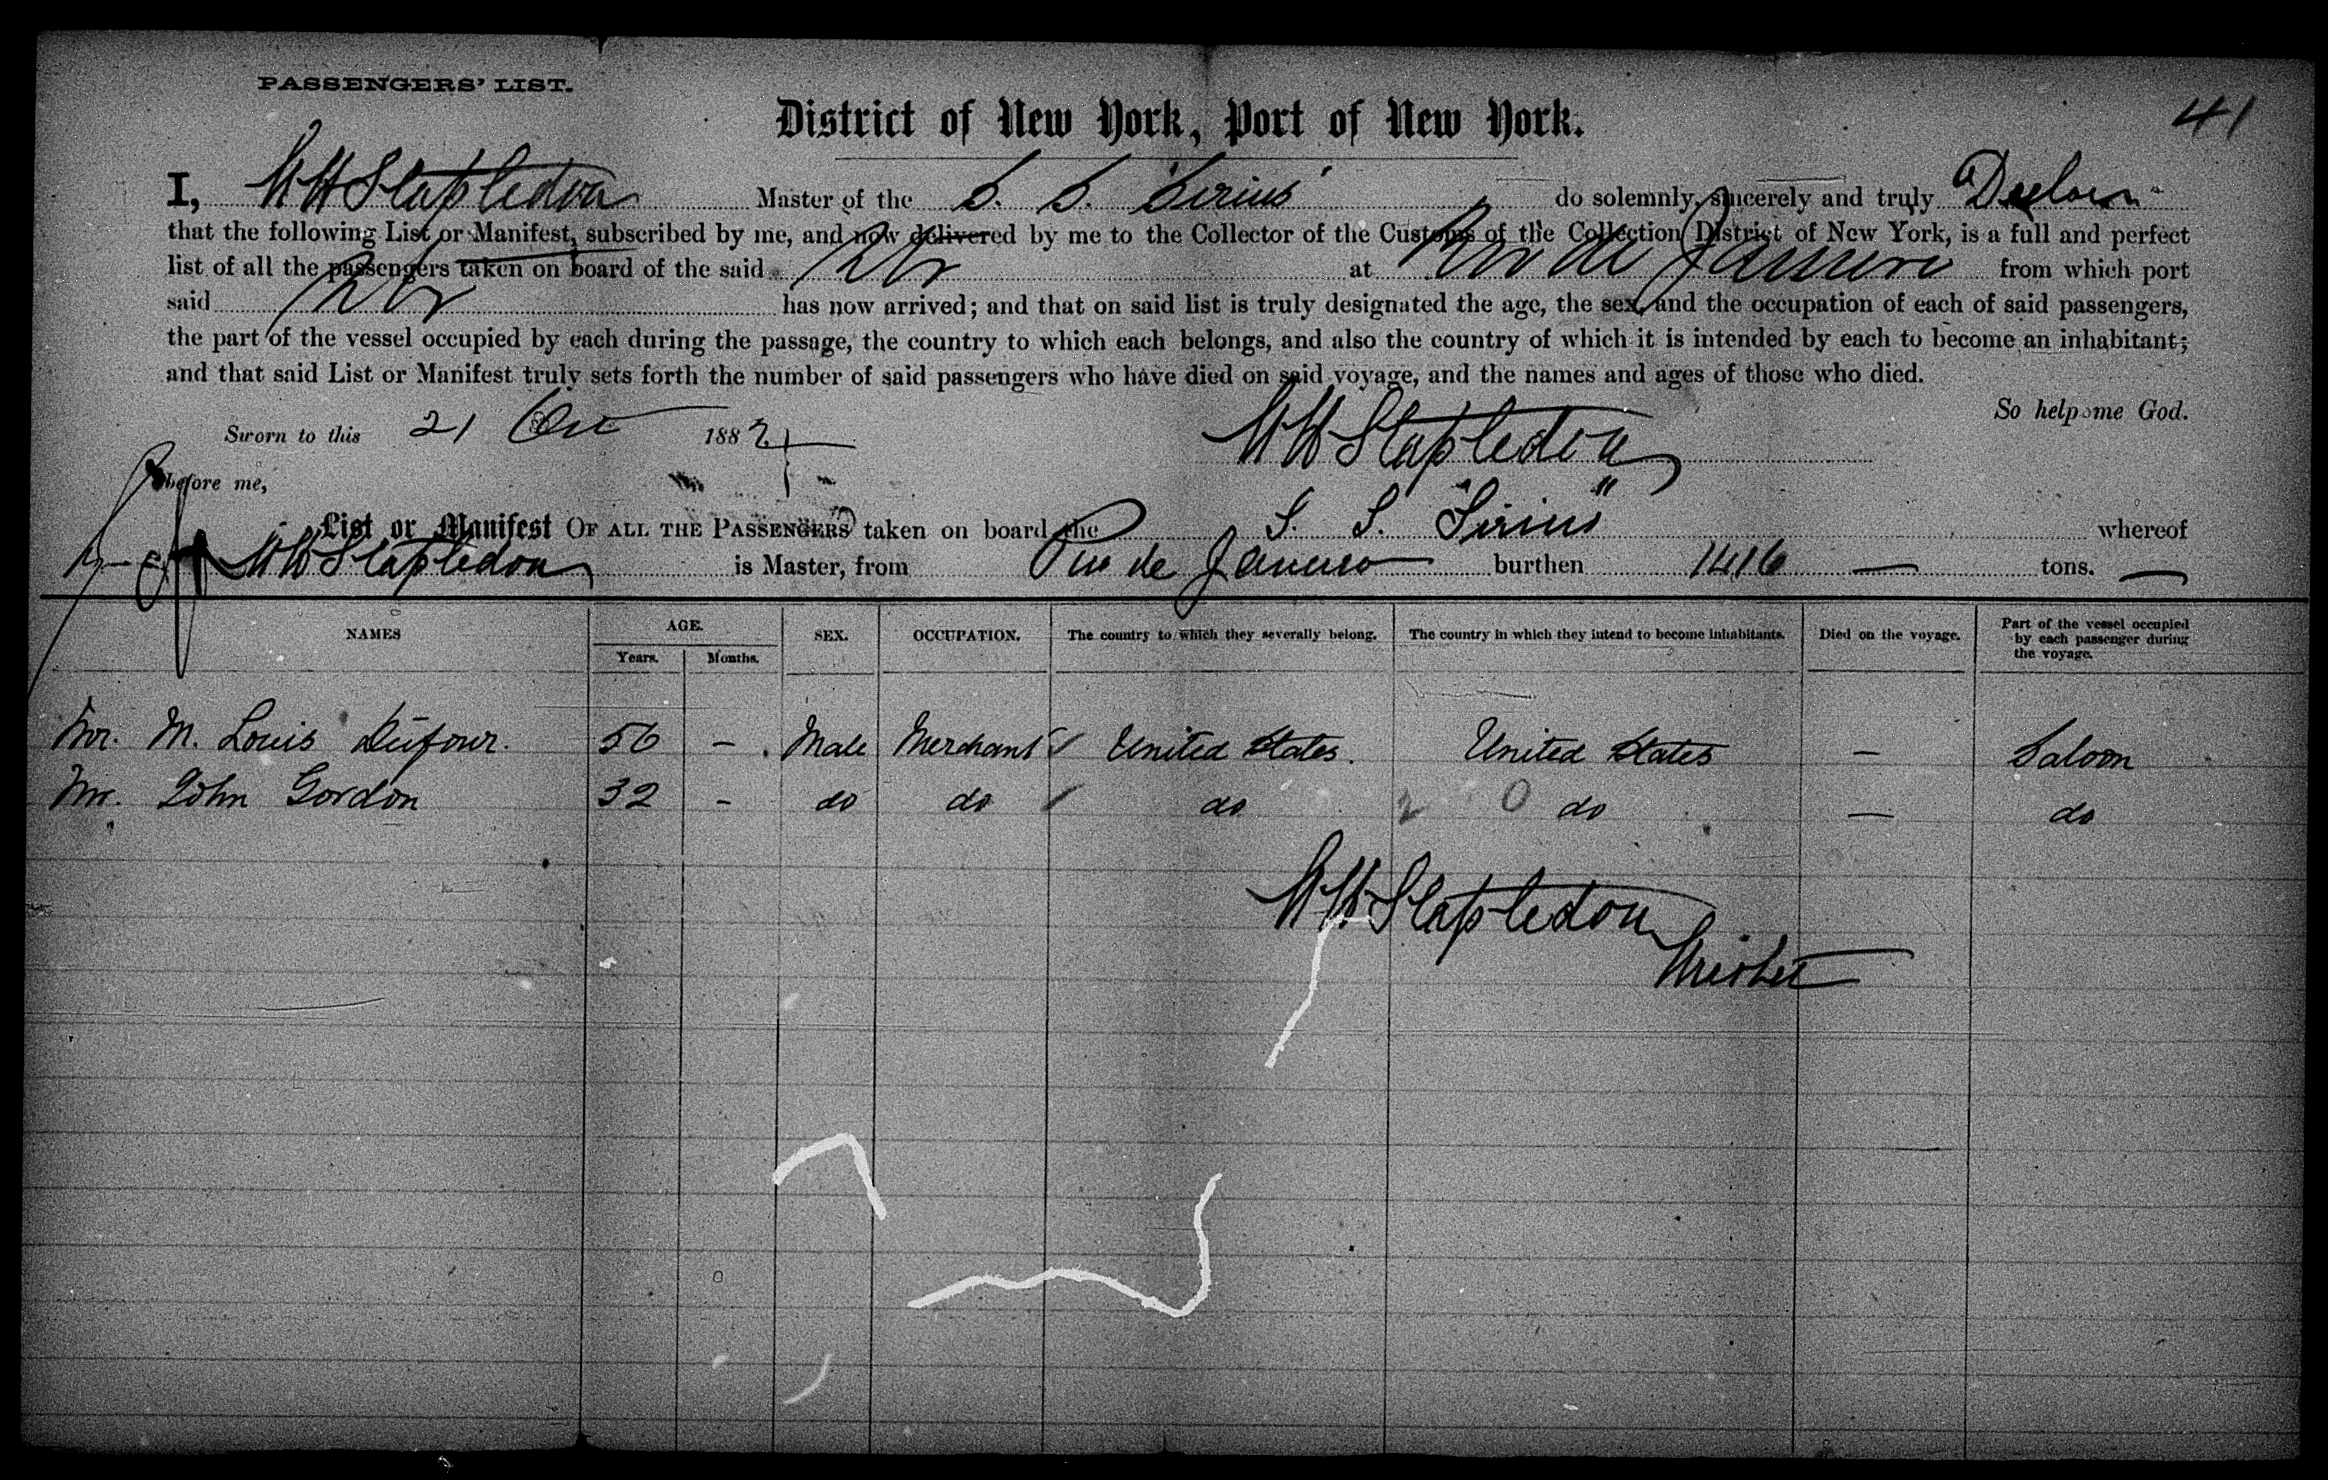 PASSENGERS' LIST.
41
District of New York, Port of New York.
I, W H Stapledon Master of the S. S. "Sirius" do solemnly, sincerely and truly Declare
that the following List or Manifest, subscribed by me, and now delivered by me to the Collector of the Customs of the Collection District of New York, is a full and perfect
list of all the passengers taken on board of the said at Rio de Janeiro from which port
said has now arrived; and that on said list is truly designated the age, the sex, and the occupation of each of said passengers,
the part of the vessel occupied by each during the passage, the country to which each belongs, and also the country of which it is intended by each to become an inhabitant;
and that said List or Manifest truly sets forth the number of said passengers who have died on said voyage, and the names and ages of those who died.
So help me God.
Sworn to this 21 188
W H Stapledon
before me,
List or Manifest OF ALL THE PASSENGERS taken on board the S. S. "Sirius" whereof
W H Stapledon is Master, from Rio de Janeiro burthen 1416 — tons. —
NAMES AGE. SEX. OCCUPATION. The country to which they severally belong. The country in which they intend to become inhabitants. Died on the voyage. Part of the vessel occupied by each passenger during the voyage.
Years. Months.
Mr. M. Louis Dufour. 56 - Male Merchant United States. United States — Saloon
Mr. John Gordon 32 - do do do 2 0 do — do
W H Stapledon